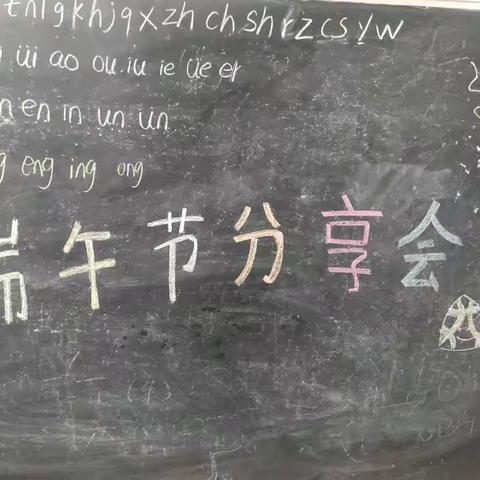 t n l g k h j q x zh ch sh r z c s y w
üi ao ou iu ie üe er
en in un ün
eng ing ong
端午节分享会